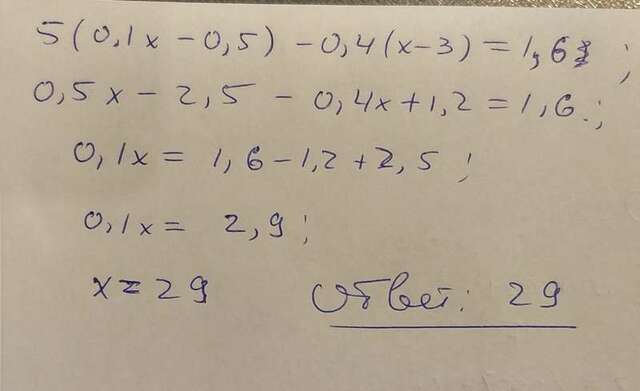 5(0,1x-0,5) -0,4(x-3)=1,6;
0,5x-2,5-0,4x+1,2=1,6.;
0,1x= 1,6-1,2+2,5;
0,1x= 2,9;
x=29 Ответ: 29